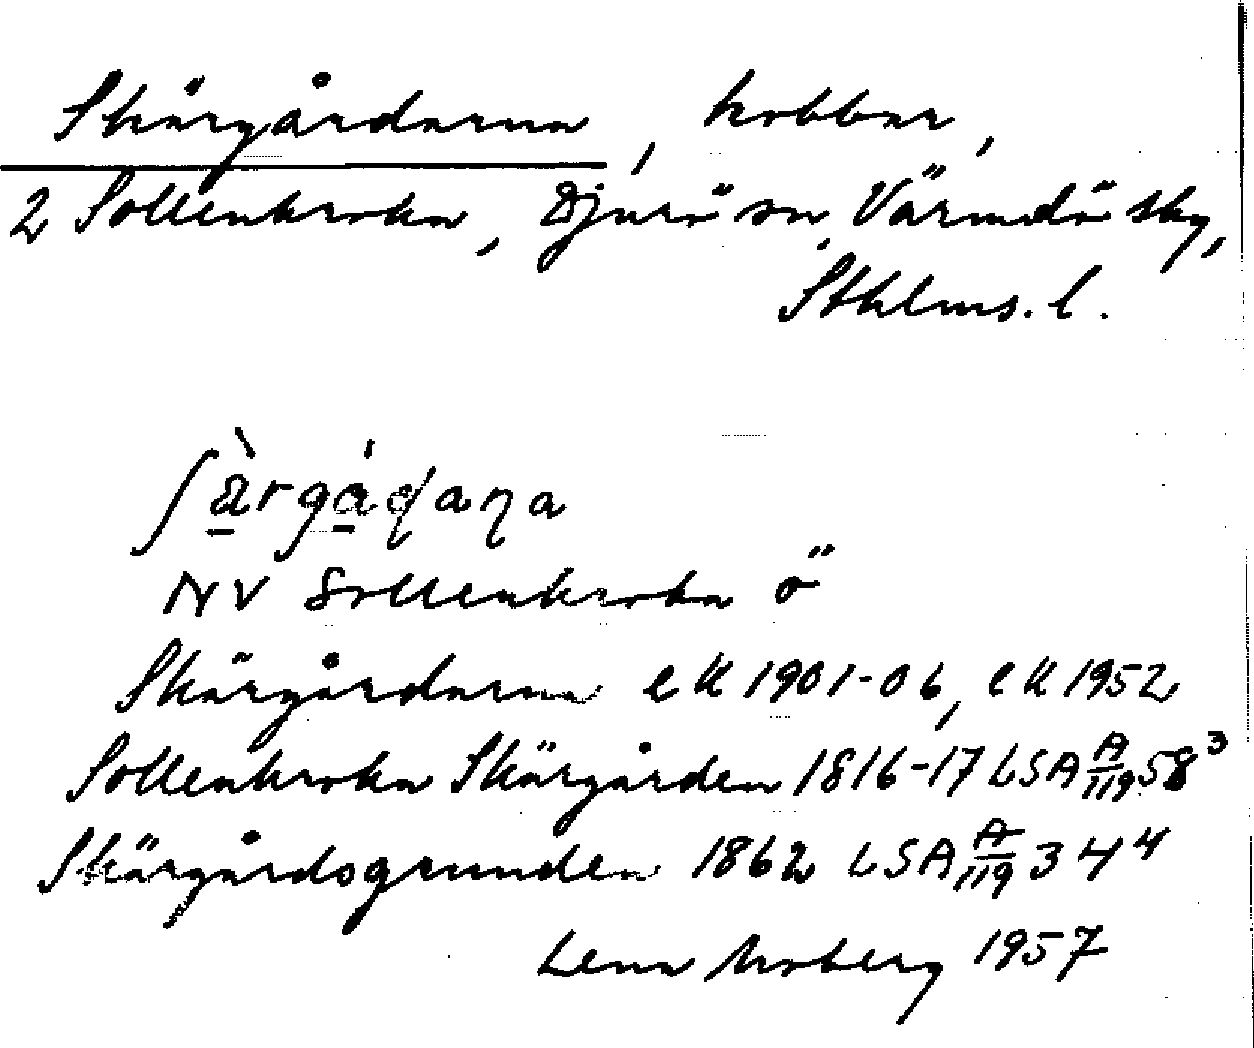 Skärgårdarna, kobbar,
2 Sollenkroka, Djurö sn, Värmdö sky,
Sthlms. l.
ʃä̀rgåɖaɳa
NV Sollenkroka ö
Skärgårdarna eK 1901-06, eK 1952
Sollenkroka Skärgården 1816-17 LSA A/119 58³
Skärgårdsgrunden 1862 LSA A/119 34⁴
Lena Moberg 1957